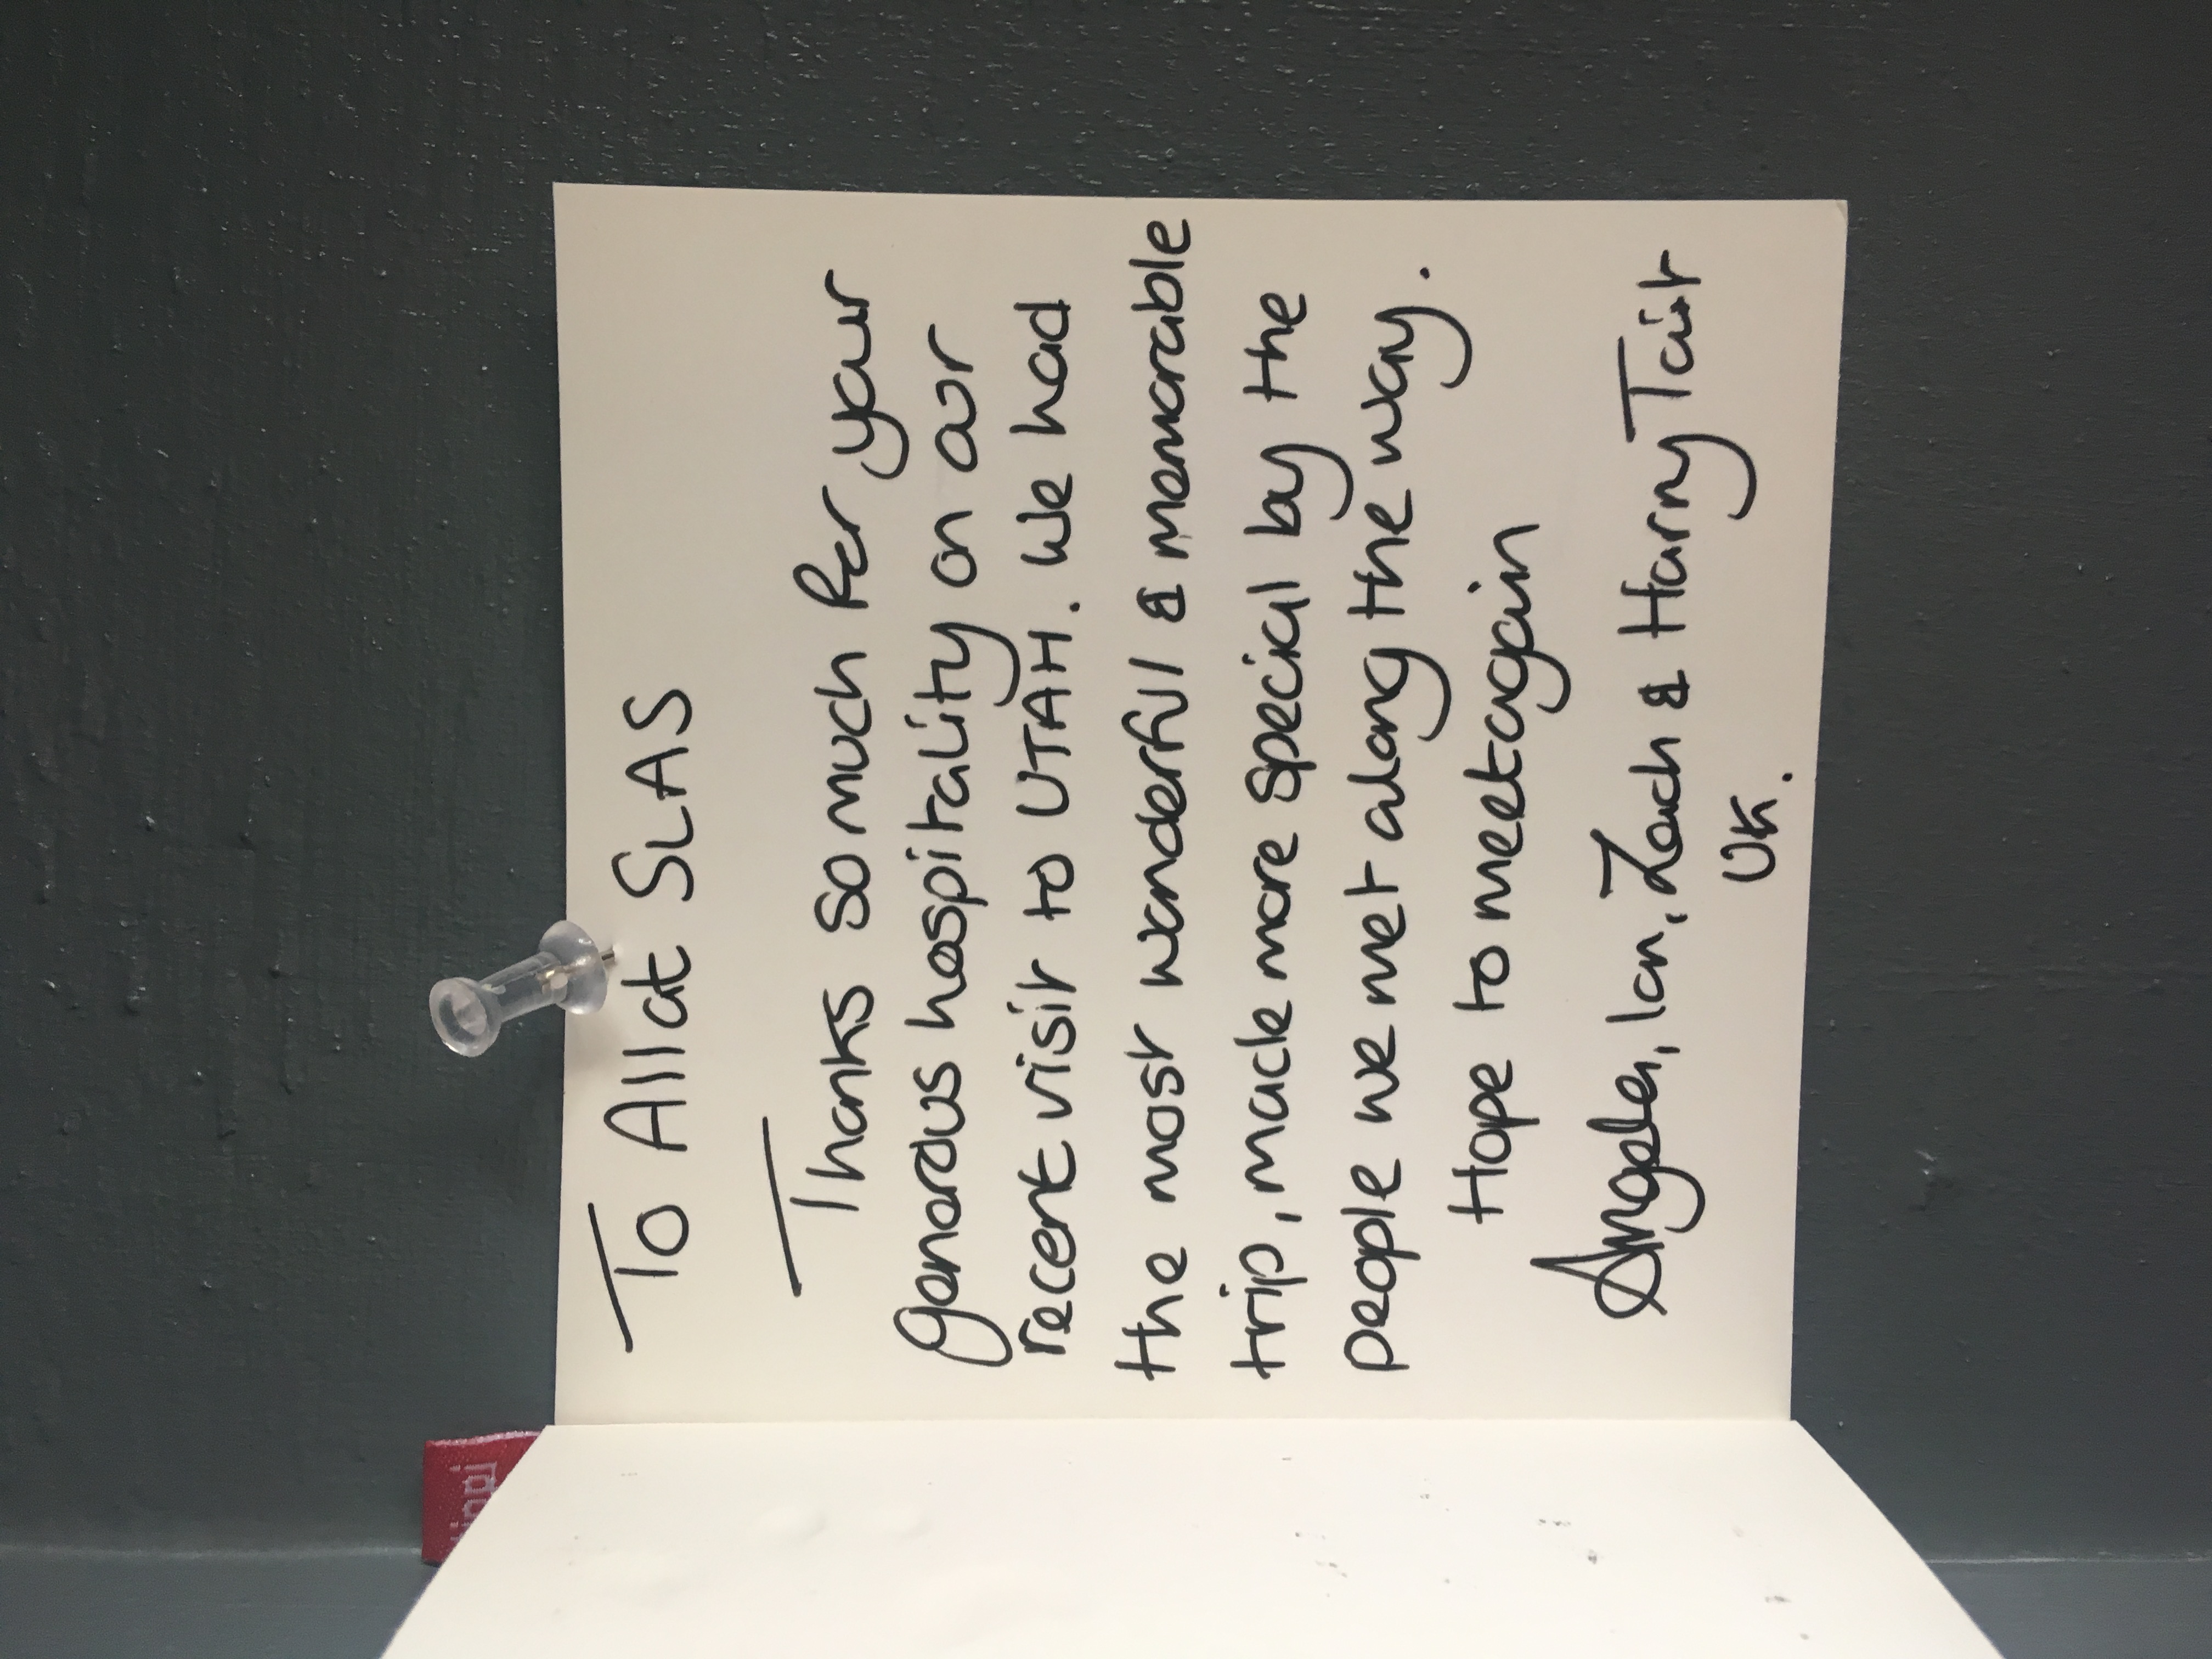 To All at SLAS
Thanks so much for your
generous hospitality on our
recent visit to UTAH. We had
the most wonderful & memorable
trip, made more special by the
people we met along the way.
Hope to meet again
Angela, Ian, Zach & Harry Tait
UK.